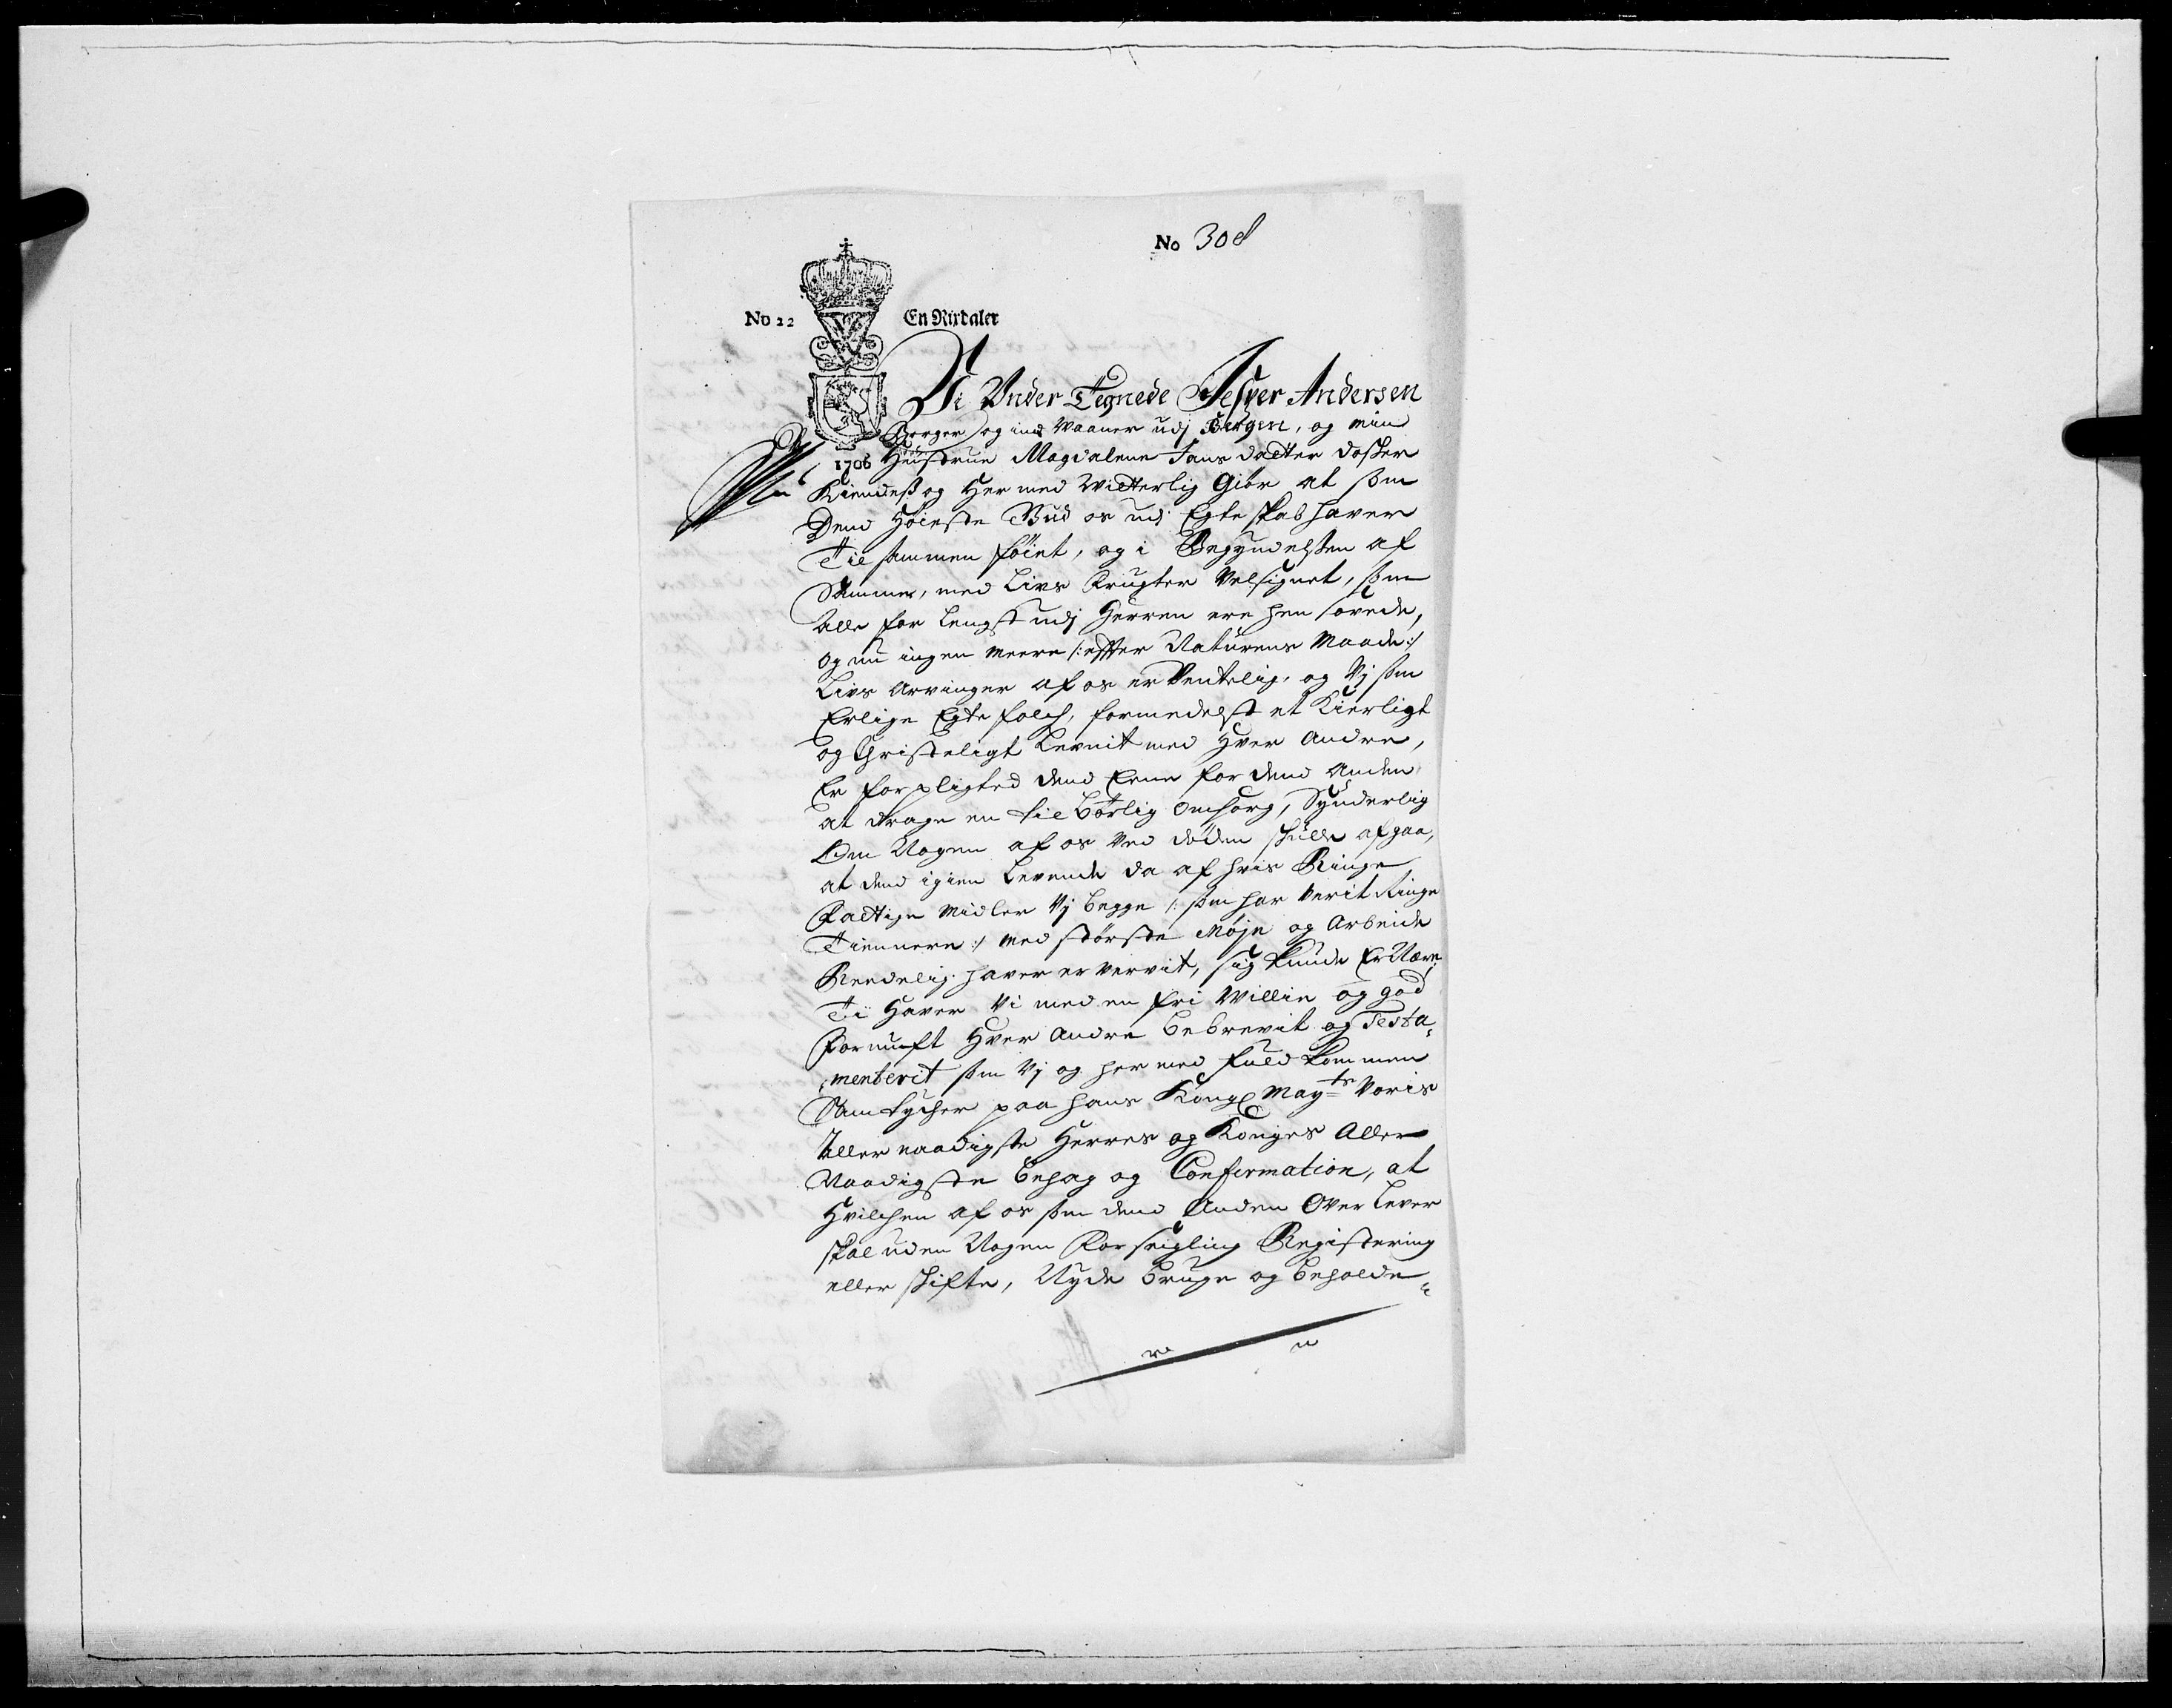 No 308
No 22 En Rixdaler
Vi Under Tegnede Jesper Andersen
Borger og ind Vaaner udj Bergen, og min
1706 Hustrue Magdalena Jans datter
Kiendes og Her med Witterlig Giør at som
Dend Høieste Gud os udj Egte skab haver
Til sammen føiet, og i Begyndelsen af
Samme, med Livs Frugter Velsignet, som
alle for lengst udj Herren ere hen sovede,
og nu ingen meere /: effter Naturens Maade :/
Livs Arvinger af os er Ventelig, og Vj som
Erlige Egte folch, formedelst et Kierligt
og Christeligt Levnit med Hver Andre,
Er forpligted dend Eene for dend Anden
at drage en til børlig Omsorg, Synderlig
Om Nogen af os ved døden skulle afgaa,
at dend igien Levende da af hvis Ringe
Fattige Midler Vj begge /: som har Verit Ringe
Tiennere :/ med største Møje og Arbeide
Reedelig haver er Vervit, sig kunde Er Nære
Ti Haver Vi med en fri Willie og god
Fornuft Hver Andre bebrevit og Testa,
,menterit som Vj og her med fuld kommen
Samtycher paa Hans Kongl May:ts Voris
Aller naadigste Herres og Konges Aller
Naadigste behag og Confirmation, at
Hvilchen af os som dend Anden Over Lever
skal uden Nogen Forseigling Registering
eller skifte, Nyde bruge og beholde